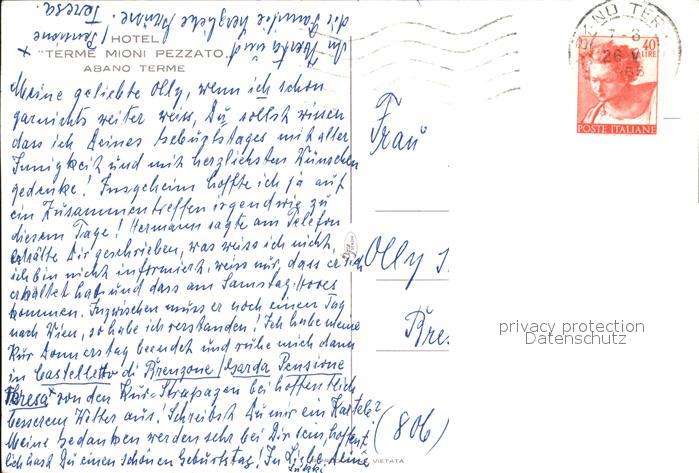 die Familie herzliche Grüße.
Teresa.
HOTEL
"TERME MIONI PEZZATO"
ABANO TERME
Meine geliebte Olly, wenn ich schon
garnichts weiter weiss, Du sollst wissen
dass ich Deines Geburtstages mit aller
Innigkeit und mit herzlichsten Wünschen
gedenke! Insgeheim hoffte ich ja auf
ein Zusammentreffen irgendwie zu
diesem Tage! Hermann sagte am Telefon
er hätte Dir geschrieben, was weiss ich nicht,
ich bin nicht informiert, weiss nur, dass er sich
erkältet hat und dass am Samstag
kommen. Inzwischen muss er noch einen Tag
nach Wien, so habe ich verstanden! Ich habe meine
Kur Donnerstag beendet und ruhe mich dann
in Castelletto di Brenzone/Garda Pensione
Teresa x von den Kur=Strapazen bei hoffentlich
besserem Wetter aus! Schreibst Du mir ein Kärtele?
Meine Gedanken werden sehr bei Dir sein, hoffent-
lich hast Du einen schönen Geburtstag! In Liebe Deine
ABANO TER
7-8
26 V
65
40
LIRE
POSTE ITALIANE
Frau
Olly
Bres
(806)
VIETATA
privacy protection
Datenschutz